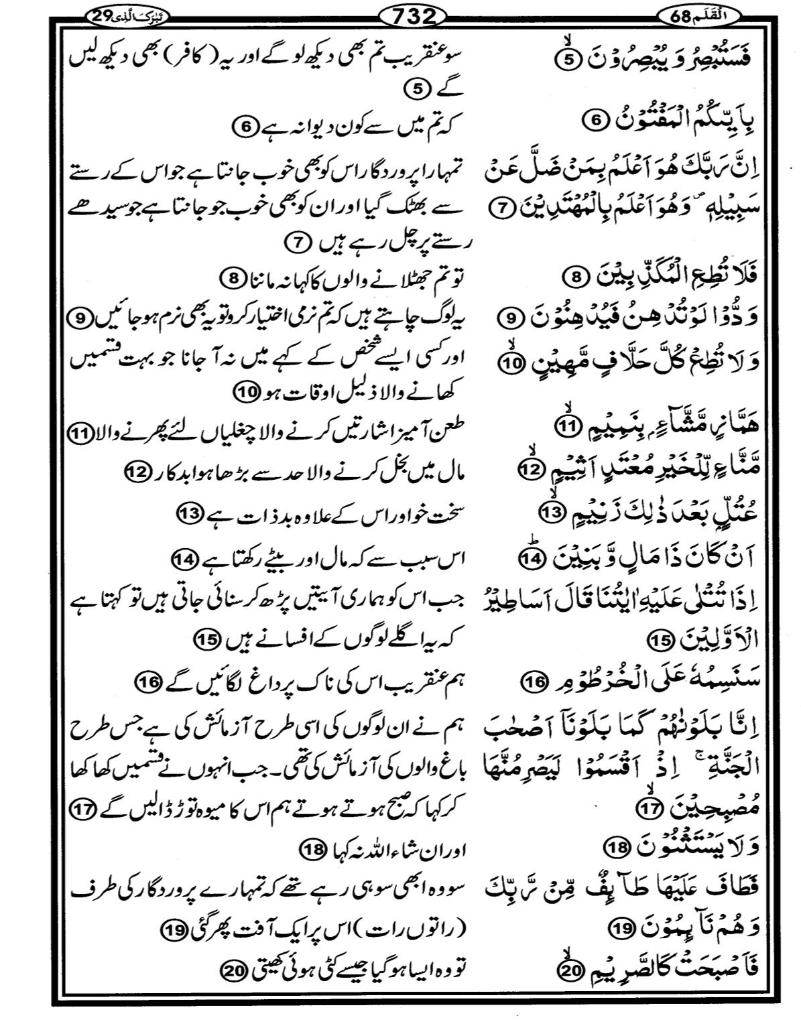 القلم68
732
تبٰرک الذی29
فَسَتُبۡصِرُ وَيُبۡصِرُوۡنَ ۙ‏ 5
بِاَيِّٮكُمُ الۡمَفۡتُوۡنُ‏ 6
اِنَّ رَبَّكَ هُوَ اَعۡلَمُ بِمَنۡ ضَلَّ عَنۡ
سَبِيۡلِهٖ ۖ وَهُوَ اَعۡلَمُ بِالۡمُهۡتَدِيۡنَ‏ 7
فَلَا تُطِعِ الۡمُكَذِّبِيۡنَ‏ 8
وَدُّوۡا لَوۡ تُدۡهِنُ فَيُدۡهِنُوۡنَ‏ 9
وَلَا تُطِعۡ كُلَّ حَلَّافٍ مَّهِيۡنٍ ۙ‏ 10
هَمَّازٍ مَّشَّآءٍۢ بِنَمِيۡمٍ ۙ‏ 11
مَّنَّاعٍ لِّلۡخَيۡرِ مُعۡتَدٍ اَثِيۡمٍ ۙ‏ 12
عُتُلٍّ ۢ بَعۡدَ ذٰلِكَ زَنِيۡمٍ ۙ‏ 13
اَنۡ كَانَ ذَا مَالٍ وَّبَنِيۡنَ ؕ‏ 14
اِذَا تُتۡلٰى عَلَيۡهِ اٰيٰتُنَا قَالَ اَسَاطِيۡرُ
الۡاَوَّلِيۡنَ‏ 15
سَنَسِمُهٗ عَلَى الۡخُـرۡطُوۡمِ‏ 16
اِنَّا بَلَوۡنٰهُمۡ كَمَا بَلَوۡنَاۤ اَصۡحٰبَ
الۡجَنَّةِ ۚ اِذۡ اَقۡسَمُوۡا لَيَصۡرِمُنَّهَا
مُصۡبِحِيۡنَ ۙ‏ 17
وَلَا يَسۡتَثۡنُوۡنَ‏ 18
فَطَافَ عَلَيۡهَا طَآٮِٕفٌ مِّنۡ رَّبِّكَ
وَهُمۡ نَآٮِٕمُوۡنَ‏ 19
فَاَصۡبَحَتۡ كَالصَّرِيۡمِ ۙ‏ 20
سو عنقریب تم بھی دیکھ لو گے اور یہ (کافر) بھی دیکھ لیں
گے 5
کہ تم میں سے کون دیوانہ ہے 6
تمہارا پروردگار اس کو بھی خوب جانتا ہے جو اس کے رستے
سے بھٹک گیا اور ان کو بھی خوب جو جانتا ہے جو سیدھے
رستے پر چل رہے ہیں 7
تو تم جھٹلانے والوں کا کہا نہ ماننا 8
یہ لوگ چاہتے ہیں کہ تم نرمی اختیار کرو تو یہ بھی نرم ہو جائیں 9
اور کسی ایسے شخص کے کہے میں نہ آ جانا جو بہت قسمیں
کھانے والا ذلیل اوقات ہو 10
طعن آمیز اشارتیں کرنے والا چغلیاں لئے پھرنے والا 11
مال میں بخل کرنے والا حد سے بڑھا ہوا بدکار 12
سخت خو اور اس کے علاوہ بدذات ہے 13
اس سبب سے کہ مال اور بیٹے رکھتا ہے 14
جب اس کو ہماری آیتیں پڑھ کر سنائی جاتی ہیں تو کہتا ہے
کہ یہ اگلے لوگوں کے افسانے ہیں 15
ہم عنقریب اس کی ناک پر داغ لگائیں گے 16
ہم نے ان لوگوں کی اسی طرح آزمائش کی ہے جس طرح
باغ والوں کی آزمائش کی تھی۔ جب انہوں نے قسمیں کھا کھا
کر کہا کہ صبح ہوتے ہوتے ہم اس کا میوہ توڑ ڈالیں گے 17
اور ان شاء اللہ نہ کہا 18
سو وہ ابھی سو ہی رہے تھے کہ تمہارے پروردگار کی طرف
(راتوں رات) اس پر ایک آفت پھر گئی 19
تو وہ ایسا ہو گیا جیسے کٹی ہوئی کھیتی 20